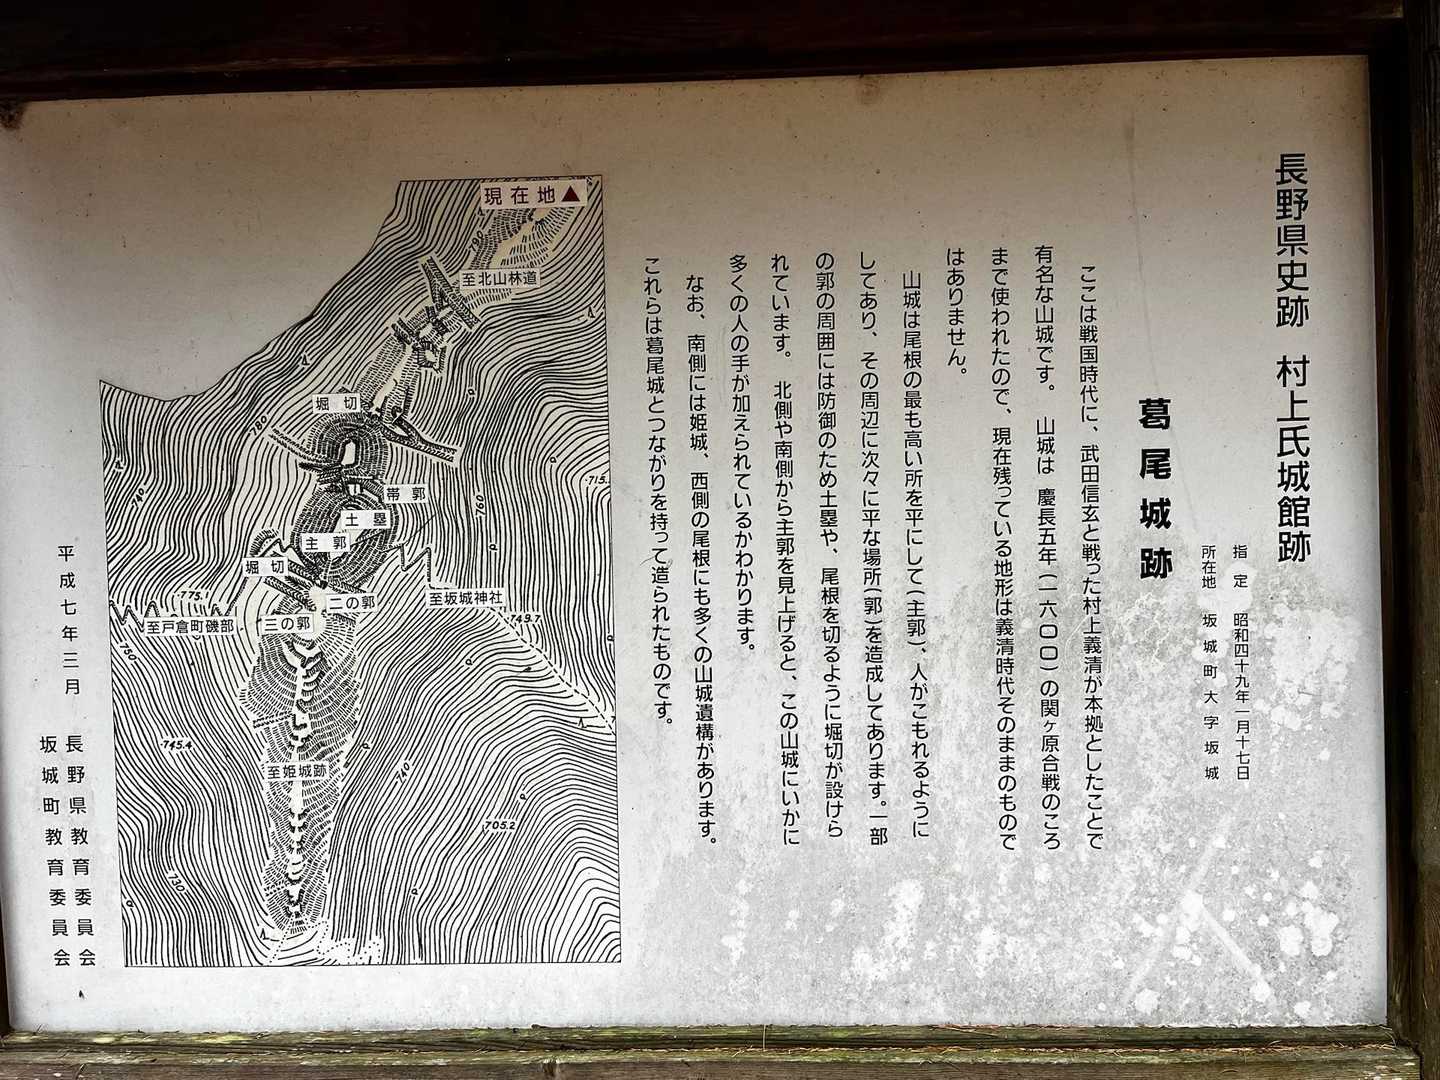 長野県史跡 村上氏城館跡
指定 昭和四十九年一月十七日
所在地 坂城町大字坂城
葛尾城跡
ここは戦国時代に、武田信玄と戦った村上義清が本拠としたことで
有名な山城です。 山城は 慶長五年(一六〇〇)の関ヶ原合戦のころ
まで使われたので、現在残っている地形は義清時代そのままのもので
はありません。
山城は尾根の最も高い所を平にして(主郭)、人がこもれるように
してあり、その周辺に次々に平な場所(郭)を造成してあります。一部
の郭の周囲には防御のため土塁や、尾根を切るように堀切が設けら
れています。 北側や南側から主郭を見上げると、この山城にいかに
多くの人の手が加えられているかわかります。
なお、南側には姫城、西側の尾根にも多くの山城遺構があります。
これらは葛尾城とつながりを持って造られたものです。
現在地▲
790
至北山林道
堀切
780
740
715.
760
帯郭
土塁
主郭
堀切
775.1
二の郭
至坂城神社
三の郭
至戸倉町磯部
749.7
750
745.4
至姫城跡
740
705.2
730
平成七年三月
長野県教育委員会
坂城町教育委員会